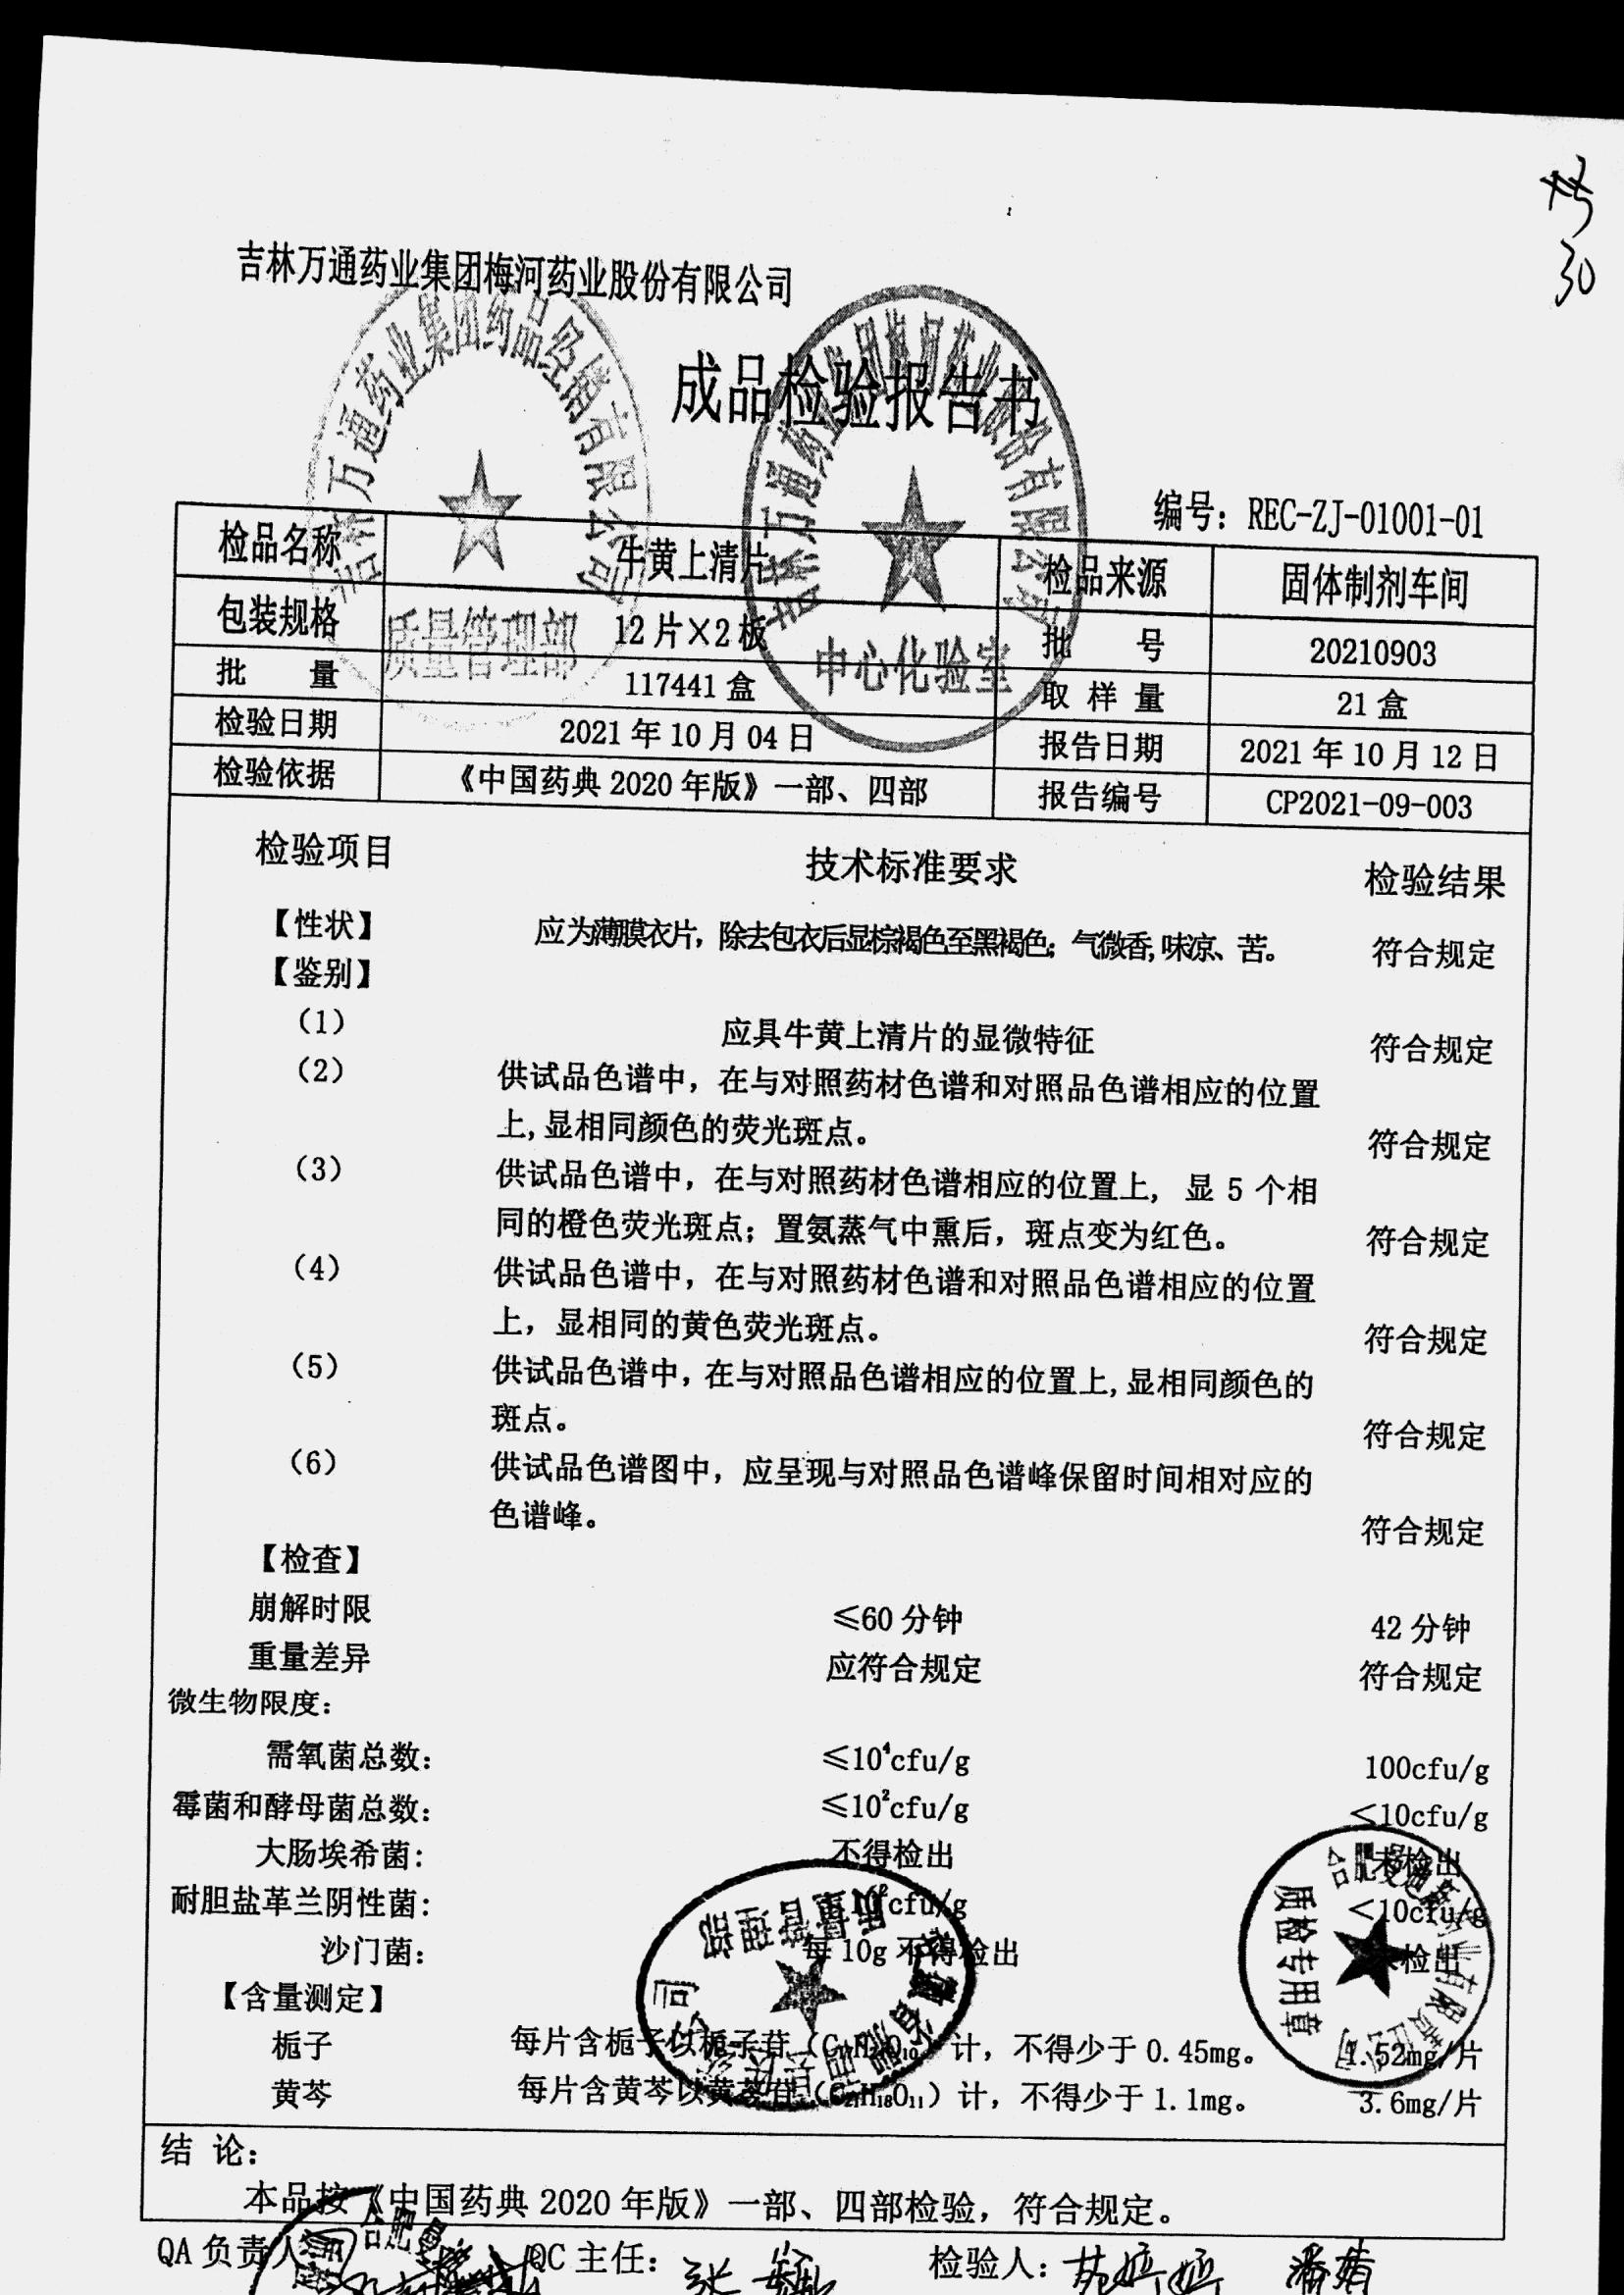 30
吉林万通药业集团梅河药业股份有限公司
成品检验报告书
吉林万通药业集团药品经销有限公司
质量管理部
吉林万通药业集团梅河药业股份有限公司
中心化验室
编号：REC-ZJ-01001-01
检品名称 牛黄上清片 检品来源 固体制剂车间
包装规格 12片×2板 批 号 20210903
批 量 117441盒 取样量 21盒
检验日期 2021年10月04日 报告日期 2021年10月12日
检验依据 《中国药典2020年版》一部、四部 报告编号 CP2021-09-003
检验项目 技术标准要求 检验结果
【性状】 应为薄膜衣片，除去包衣后显棕褐色至黑褐色；气微香,味凉、苦。 符合规定
【鉴别】
（1） 应具牛黄上清片的显微特征 符合规定
（2） 供试品色谱中，在与对照药材色谱和对照品色谱相应的位置
上,显相同颜色的荧光斑点。 符合规定
（3） 供试品色谱中，在与对照药材色谱相应的位置上，显5个相
同的橙色荧光斑点；置氨蒸气中熏后，斑点变为红色。 符合规定
（4） 供试品色谱中，在与对照药材色谱和对照品色谱相应的位置
上，显相同的黄色荧光斑点。 符合规定
（5） 供试品色谱中,在与对照品色谱相应的位置上,显相同颜色的
斑点。 符合规定
（6） 供试品色谱图中，应呈现与对照品色谱峰保留时间相对应的
色谱峰。 符合规定
【检查】
崩解时限 ≤60分钟 42分钟
重量差异 应符合规定 符合规定
微生物限度：
需氧菌总数： ≤10⁴cfu/g 100cfu/g
霉菌和酵母菌总数： ≤10²cfu/g <10cfu/g
大肠埃希菌： 不得检出 未检出
耐胆盐革兰阴性菌： 10²cfu/g <10cfu/g
沙门菌： 每10g不得检出 未检出
【含量测定】
栀子 每片含栀子以栀子苷（C₁₇H₂₄O₁₀）计，不得少于0.45mg。 1.52mg/片
黄芩 每片含黄芩以黄芩苷（C₂₁H₁₈O₁₁）计，不得少于1.1mg。 3.6mg/片
质量管理部
质检专用章
结 论：
本品按《中国药典2020年版》一部、四部检验，符合规定。
QA负责人 QC主任： 检验人：